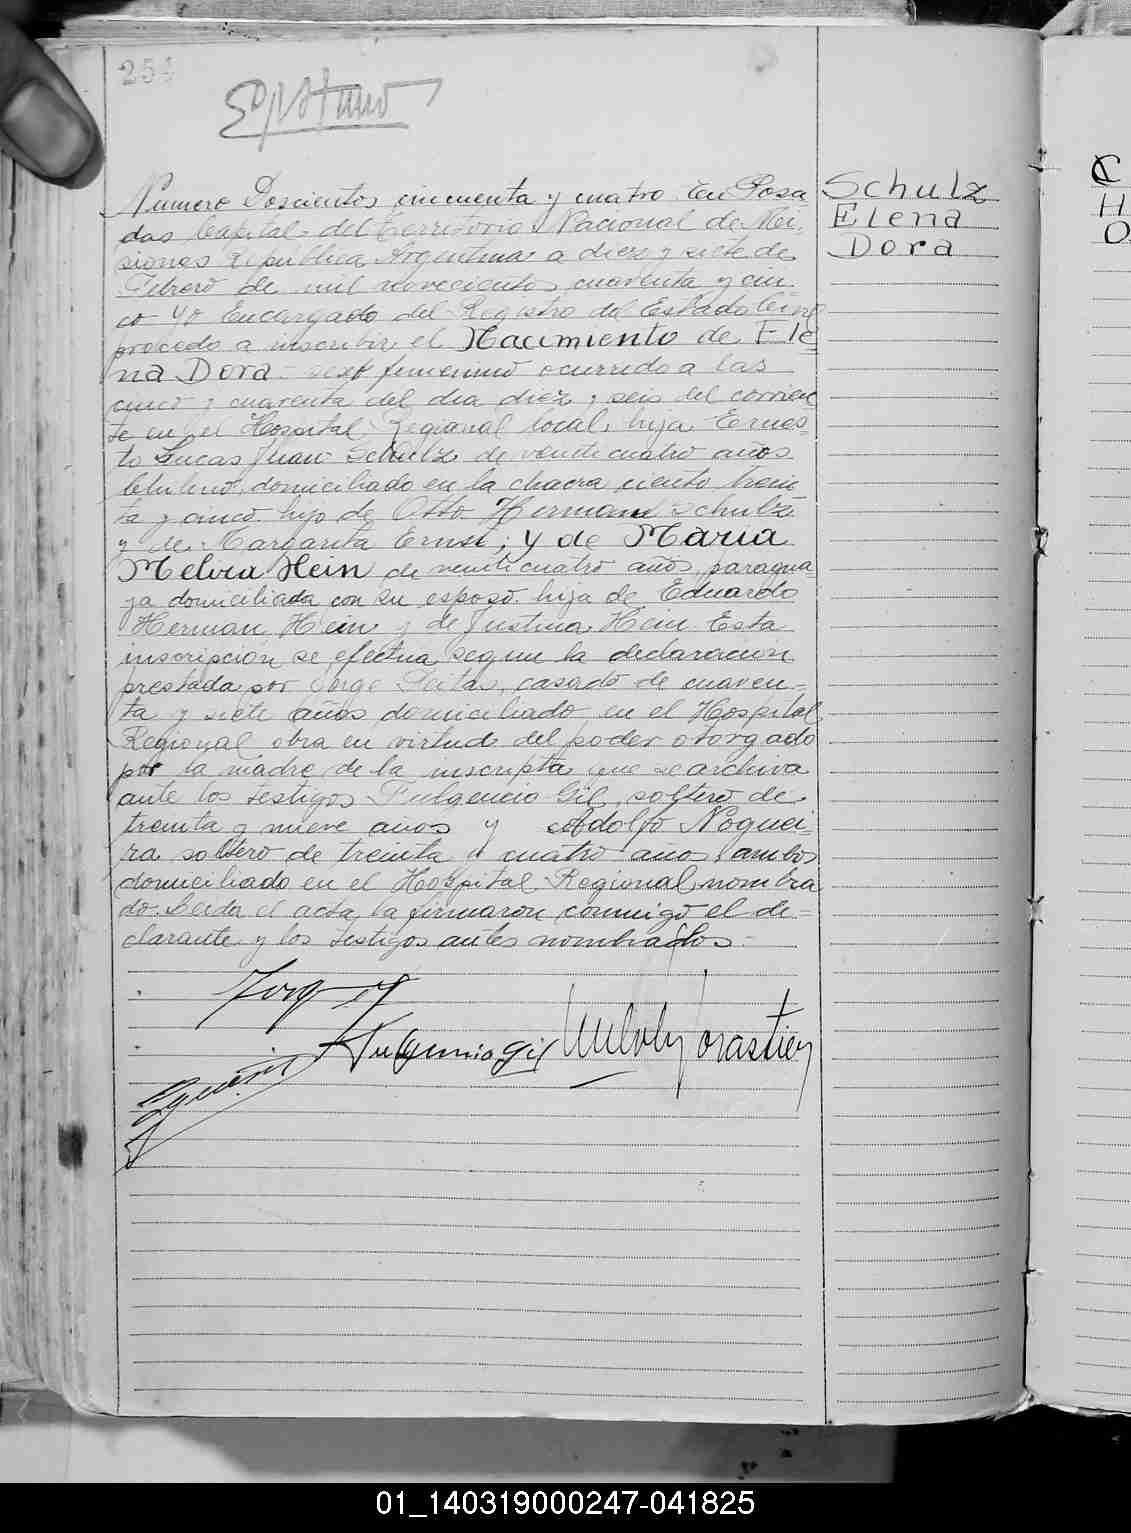 254
Numero Doscientos cincuenta y cuatro. En Posa
das Capital del Territorio Nacional de Mi-
siones Republica Argentina a diez y siete de
Febrero de mil novecientos cuarenta y cin
co yo Encargado del Registro del Estado Civil
procedo a inscribir el Nacimiento de Ele
na Dora - sexo femenino ocurrido a las
cinco y cuarenta del dia diez y seis del corrien
te en el Hospital Regional local, hija Ernes-
to Lucas Juan Schulz de veinticuatro años
domiciliado en la chacra ciento trein
ta y cinco hijo de Otto Herman Schulz
y de Margarita Ernst; y de Maria
Melvia Hein de veinticuatro años, paragua-
ya domiciliada con su esposo hija de Eduardo
Herman Hein y de Justina Hein Esta
inscripcion se efectua segun la declaracion
prestada por Jorge casado de cuaren-
ta y siete años domiciliado en el Hospital
Regional obra en virtud del poder otorgado
por la madre de la inscripta que se archiva
ante los testigos Fulgencio Gil, soltero de
treinta y nueve años y Adolfo Noguei-
ra soltero de treinta y cuatro años ambos
domiciliado en el Hospital Regional nombra
do. Leida el acta la firmaron conmigo el de-
clarante y los testigos antes nombrados.-
Fulgencio Gil
Schulz
Elena
Dora
C
H
O
01_140319000247-041825